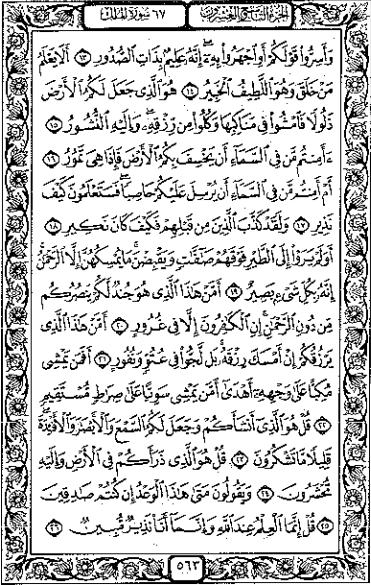 الجزء التاسع والعشرون ٦٧ سورة الملك
وَأَسِرُّوا۟ قَوْلَكُمْ أَوِ ٱجْهَرُوا۟ بِهِۦٓ إِنَّهُۥ عَلِيمٌۢ بِذَاتِ ٱلصُّدُورِ ١٣ أَلَا يَعْلَمُ
مَنْ خَلَقَ وَهُوَ ٱللَّطِيفُ ٱلْخَبِيرُ ١٤ هُوَ ٱلَّذِى جَعَلَ لَكُمُ ٱلْأَرْضَ
ذَلُولًا فَٱمْشُوا۟ فِى مَنَاكِبِهَا وَكُلُوا۟ مِن رِّزْقِهِۦ وَإِلَيْهِ ٱلنُّشُورُ ١٥
ءَأَمِنتُم مَّن فِى ٱلسَّمَآءِ أَن يَخْسِفَ بِكُمُ ٱلْأَرْضَ فَإِذَا هِىَ تَمُورُ ١٦
أَمْ أَمِنتُم مَّن فِى ٱلسَّمَآءِ أَن يُرْسِلَ عَلَيْكُمْ حَاصِبًا فَسَتَعْلَمُونَ كَيْفَ
نَذِيرِ ١٧ وَلَقَدْ كَذَّبَ ٱلَّذِينَ مِن قَبْلِهِمْ فَكَيْفَ كَانَ نَكِيرِ ١٨
أَوَلَمْ يَرَوْا۟ إِلَى ٱلطَّيْرِ فَوْقَهُمْ صَٰٓفَّٰتٍ وَيَقْبِضْنَ مَا يُمْسِكُهُنَّ إِلَّا ٱلرَّحْمَٰنُ
إِنَّهُۥ بِكُلِّ شَىْءٍۭ بَصِيرٌ ١٩ أَمَّنْ هَٰذَا ٱلَّذِى هُوَ جُندٌ لَّكُمْ يَنصُرُكُم
مِّن دُونِ ٱلرَّحْمَٰنِ إِنِ ٱلْكَٰفِرُونَ إِلَّا فِى غُرُورٍ ٢٠ أَمَّنْ هَٰذَا ٱلَّذِى
يَرْزُقُكُمْ إِنْ أَمْسَكَ رِزْقَهُۥ بَل لَّجُّوا۟ فِى عُتُوٍّ وَنُفُورٍ ٢١ أَفَمَن يَمْشِى
مُكِبًّا عَلَىٰ وَجْهِهِۦٓ أَهْدَىٰٓ أَمَّن يَمْشِى سَوِيًّا عَلَىٰ صِرَٰطٍ مُّسْتَقِيمٍ
٢٢ قُلْ هُوَ ٱلَّذِىٓ أَنشَأَكُمْ وَجَعَلَ لَكُمُ ٱلسَّمْعَ وَٱلْأَبْصَٰرَ وَٱلْأَفْـِٔدَةَ
قَلِيلًا مَّا تَشْكُرُونَ ٢٣ قُلْ هُوَ ٱلَّذِى ذَرَأَكُمْ فِى ٱلْأَرْضِ وَإِلَيْهِ
تُحْشَرُونَ ٢٤ وَيَقُولُونَ مَتَىٰ هَٰذَا ٱلْوَعْدُ إِن كُنتُمْ صَٰدِقِينَ
٢٥ قُلْ إِنَّمَا ٱلْعِلْمُ عِندَ ٱللَّهِ وَإِنَّمَآ أَنَا۠ نَذِيرٌ مُّبِينٌ ٢٦
٥٦٣